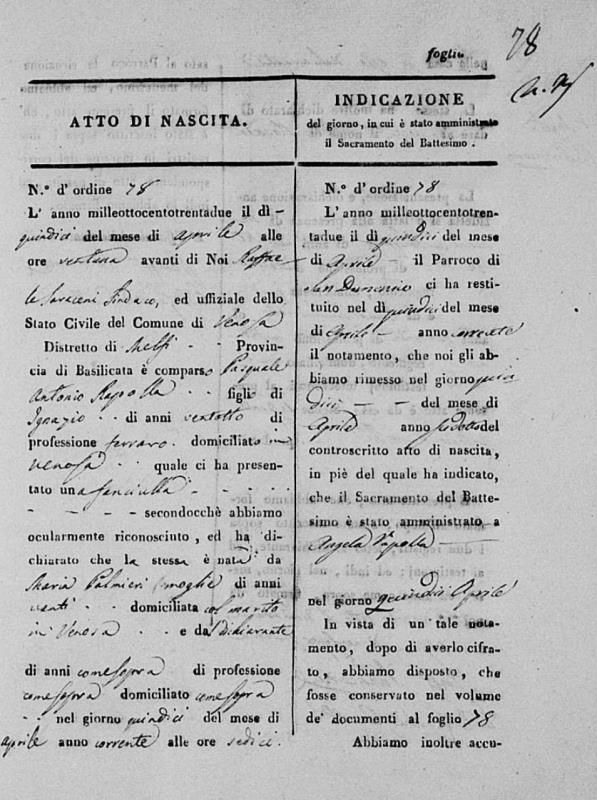 foglio 78
ATTO DI NASCITA.
N.º d' ordine 78
L' anno milleottocentotrentadue il dì
quindici del mese di Aprile alle
ore ventuna avanti di Noi Raffae-
le Saraceni Sindaco, ed uffiziale dello
Stato Civile del Comune di Venosa
Distretto di Melfi Provin-
cia di Basilicata è comparso Pasquale
Antonio Rapolla figlio di
Ignazio di anni ventotto di
professione ferraro domiciliato in
Venosa quale ci ha presen-
tato una fanciulla
secondocchè abbiamo
ocularmente riconosciuto, ed ha di-
chiarato che la stessa è nata da
Maria Palmieri moglie di anni
venti domiciliata col marito
in Venosa e dal dichiarante
di anni come sopra di professione
come sopra domiciliato come sopra
nel giorno quindici del mese di
Aprile anno corrente alle ore sedici.
INDICAZIONE
del giorno, in cui è stato amministrato
il Sacramento del Battesimo.
N.º d' ordine 78
L' anno milleottocentotren-
tadue il dì quindici del mese
di Aprile il Parroco di
San Domenico ci ha resti-
tuito nel dì quindici del mese
di Aprile anno corrente
il notamento, che noi gli ab-
biamo rimesso nel giorno quin
dici del mese di
Aprile anno sudetto del
controscritto atto di nascita,
in piè del quale ha indicato,
che il Sacramento del Batte-
simo è stato amministrato a
Angela Rapolla
nel giorno quindici Aprile
In vista di un tale nota-
mento, dopo di averlo cifra-
to, abbiamo disposto, che
fosse conservato nel volume
de' documenti al foglio 78
Abbiamo inoltre accu-